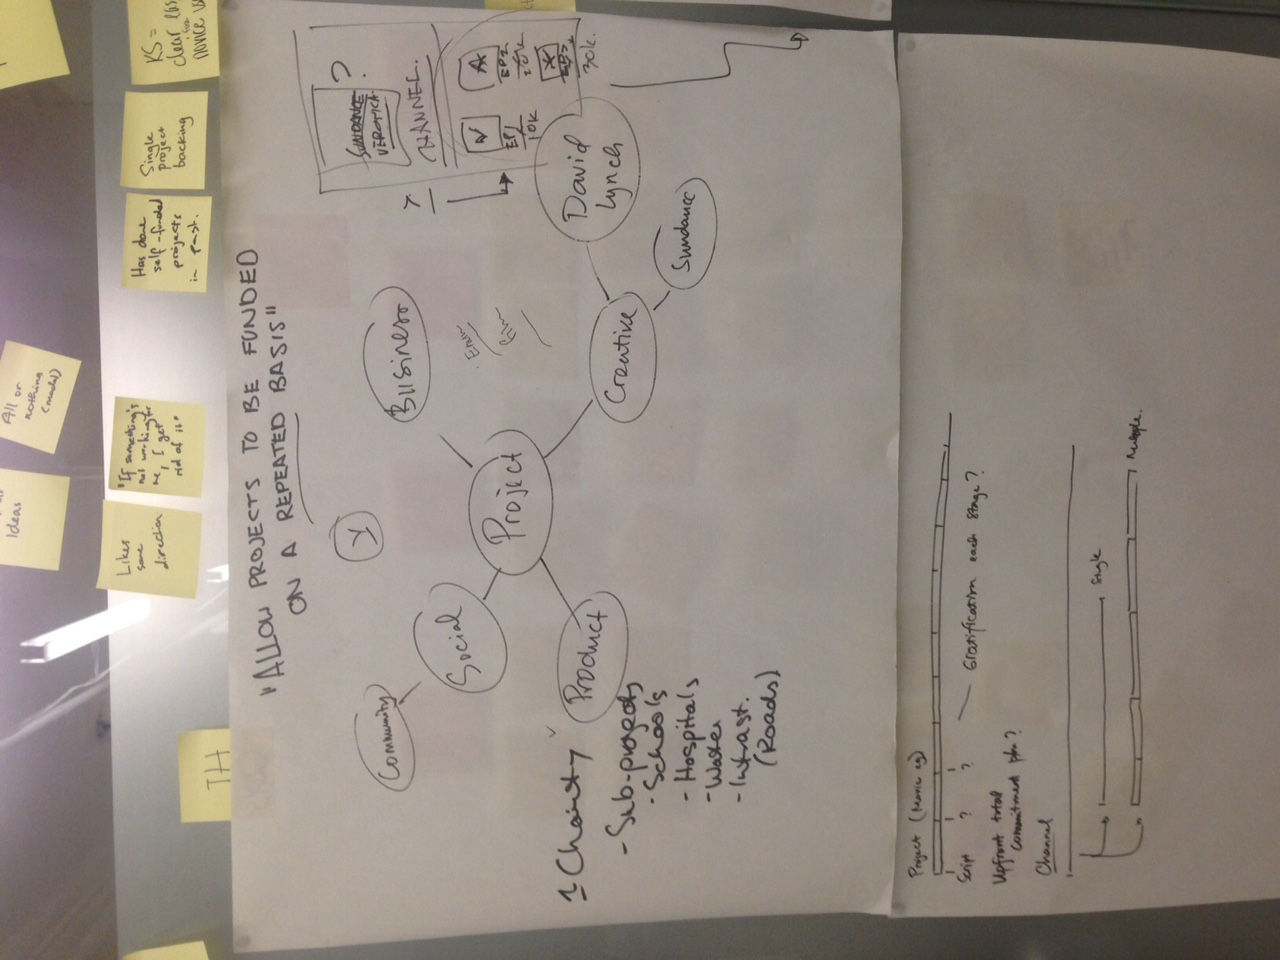 Ideas
All or
nothing
(model)
Likes
same
direction
"If something's
not working for
me, I get
rid of it"
Has done
self-funded
projects
in past.
Single
project
backing
KS =
clear
for
novice
"ALLOW PROJECTS TO BE FUNDED
ON A REPEATED BASIS"
Community
Social
Business
Project
Product
Creative
David
Lynch
Sundance
1 Charity
- Sub-projects
- Schools
- Hospitals
- Water
- Infrast.
(Roads)
SUNDANCE
VERONICA
?
CHANNEL.
EP1
10K
EP2
20K
30K.
Film
Project (Movie eg)
Script ? ?
Gratification each stage?
Upfront total
commitment plan?
Channel
Single
Multiple.